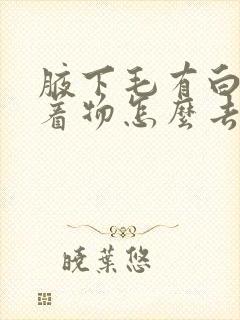 腋下毛有白
着物怎麼去
曉葉悠